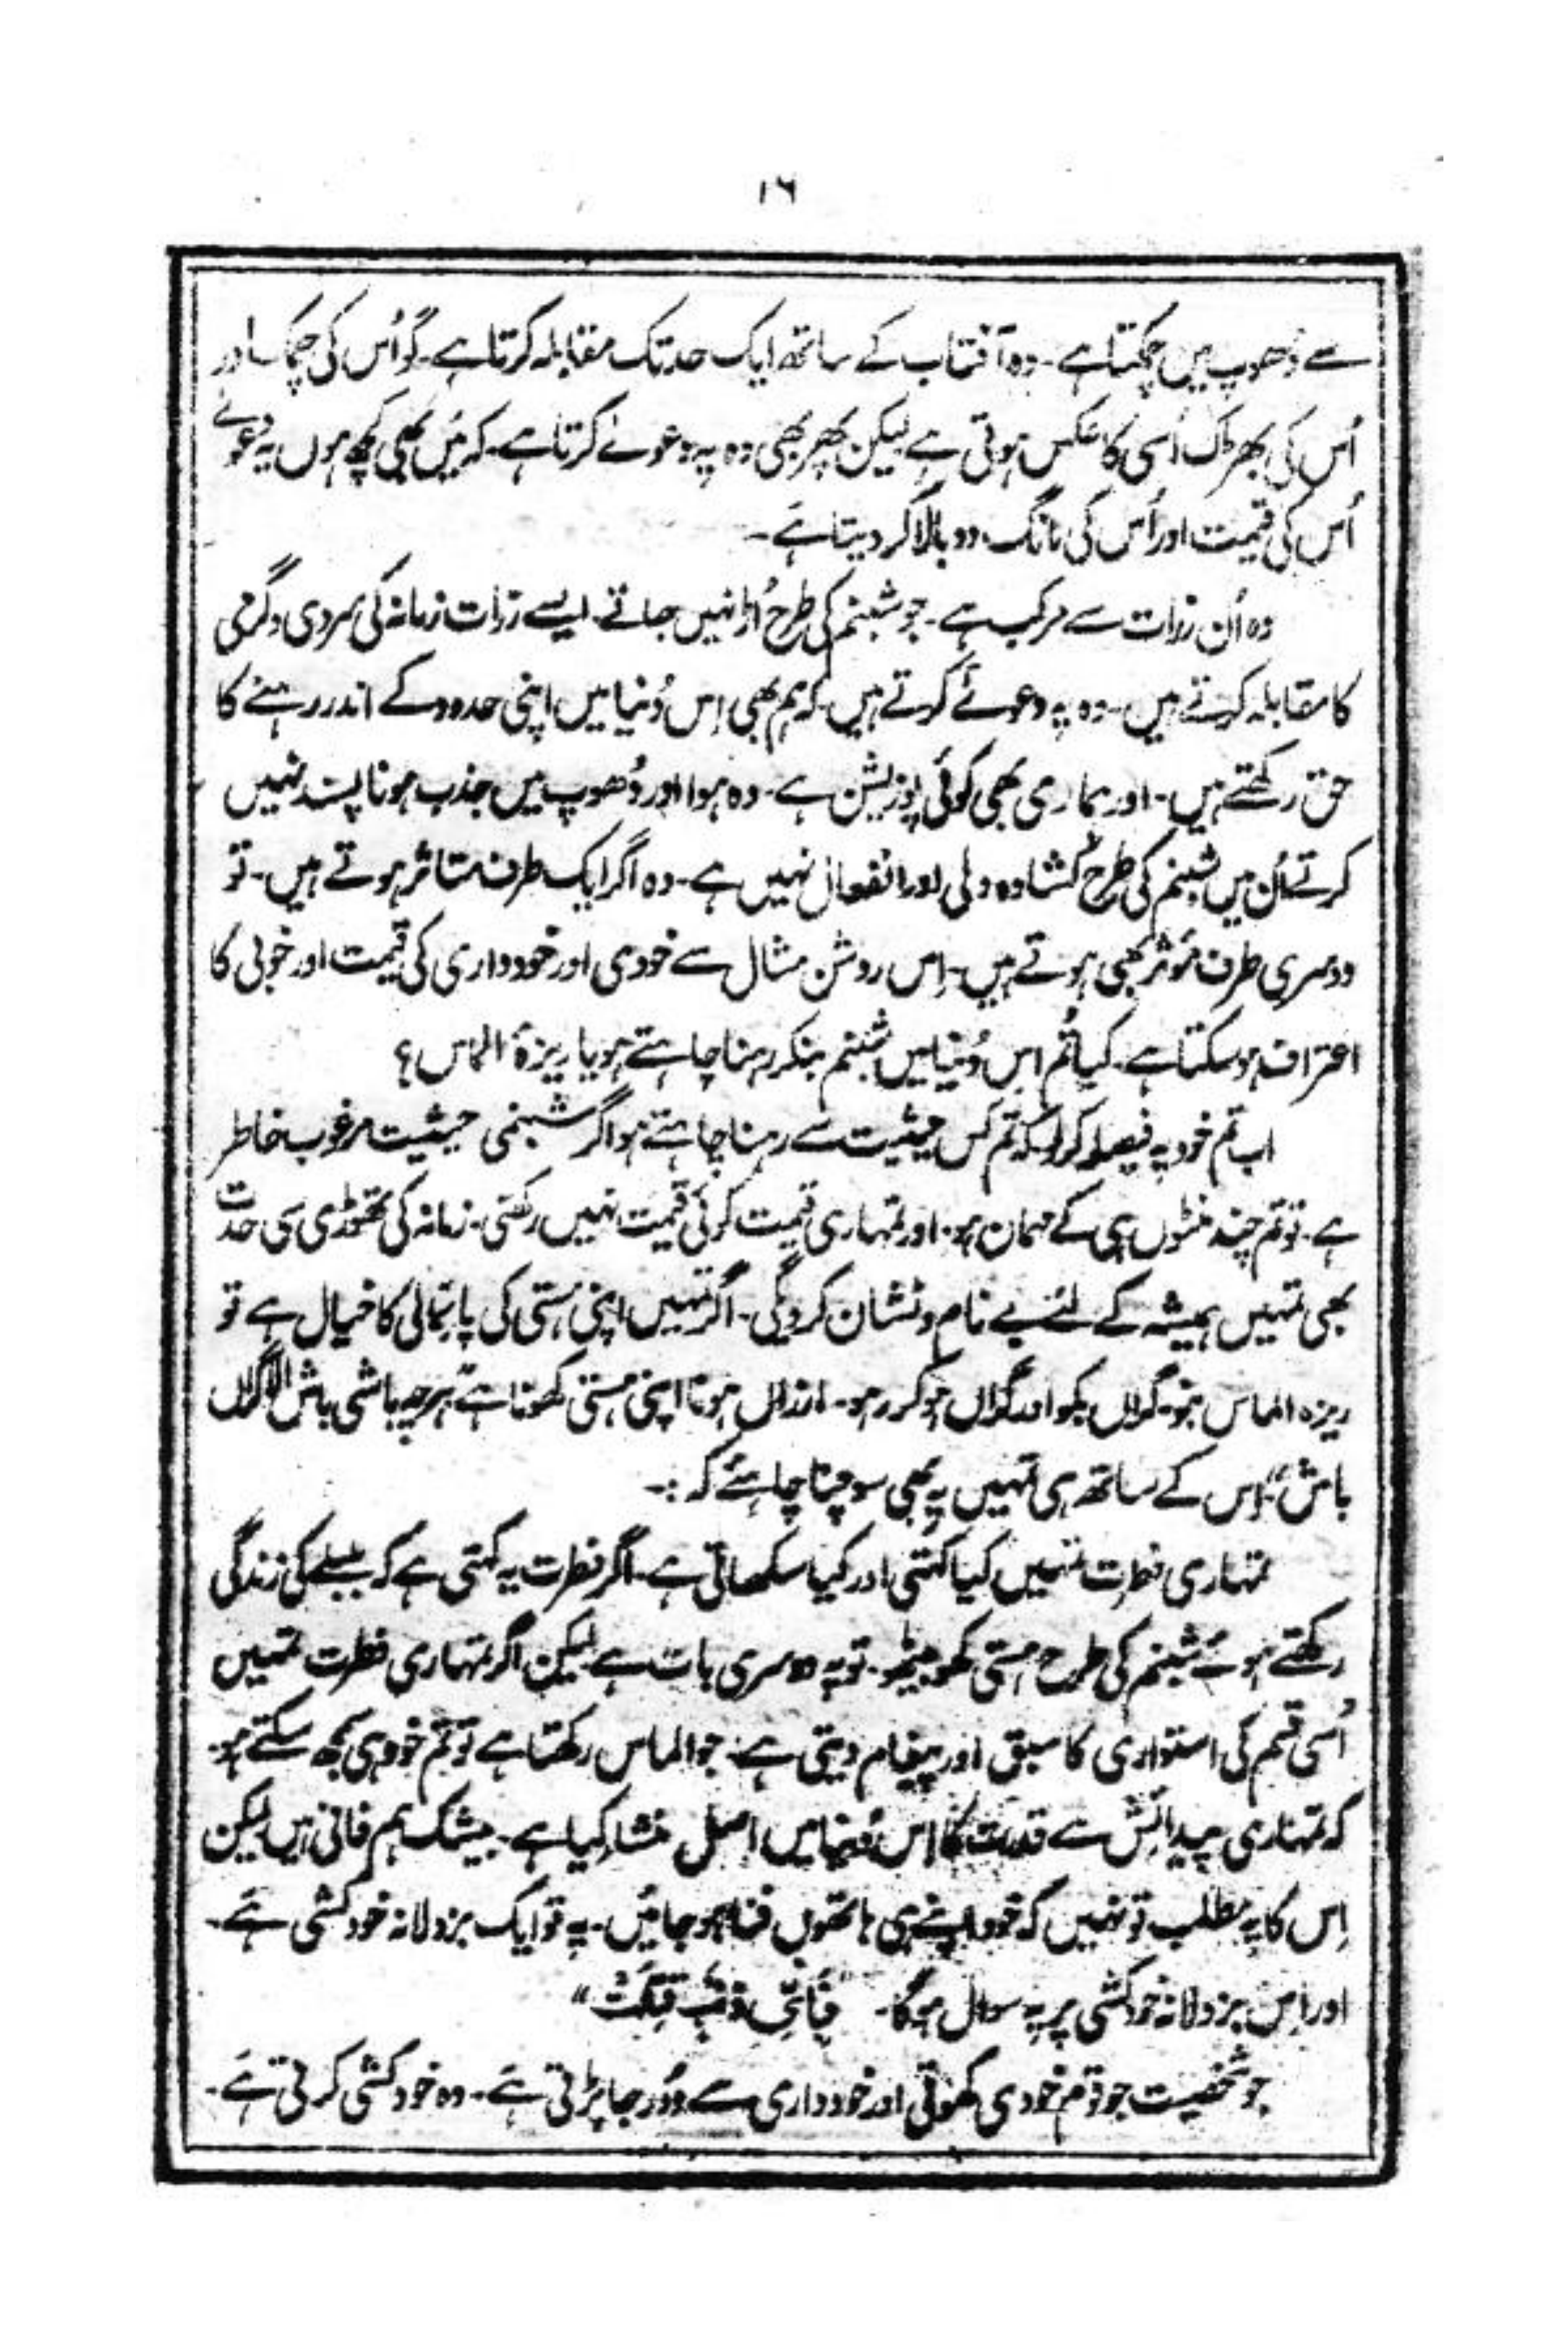 ۱۶
سے دُھوپ میں چمکتا ہے۔ وہ آفتاب کے ساتھ ایک حد تک مقابلہ کرتا ہے۔ گو اُس کی چمک اور
اُس کی بھڑک اُسی کا عکس ہوتی ہے لیکن پھر بھی وہ یہ دعوےٰ کرتا ہے۔ کہ مَیں بھی کچھ ہوں یہ دعوےٰ
اُس کی قیمت اور اُس کی مانگ دوبالا کر دیتا ہَے۔
وہ اُن ذرات سے مرکب ہے۔ جو شبنم کی طرح اُڑا نہیں جاتے۔ ایسے ذرات زمانہ کی سردی و گرمی
کا مقابلہ کرتے ہیں۔ وہ یہ دعوےٰ کرتے ہیں۔ کہ ہم بھی اِس دُنیا میں اپنی حدود کے اندر رہنے کا
حق رکھتے ہیں۔ اور ہماری بھی کوئی پوزیشن ہے۔ وہ ہوا اور دُھوپ میں جذب ہونا پسند نہیں
کرتے اُن میں شبنم کی طرح کشادہ دلی اور انفعال نہیں ہے۔ وہ اگر ایک طرف متاثر ہوتے ہیں۔ تو
دوسری طرف مؤثر بھی ہوتے ہیں۔ اِس روشن مثال سے خودی اور خودداری کی قیمت اور خوبی کا
اعتراف ہو سکتا ہے۔ کیا تُم اِس دُنیا میں شبنم بنکر رہنا چاہتے ہو یا ریزۂ الماس؟
اب تم خود یہ فیصلہ کر لو کہ تم کس حیثیت سے رہنا چاہتے ہو اگر شبنمی حیثیت مرغوب خاطر
ہے۔ تو تم چند منٹوں ہی کے مہمان ہو۔ اور تمہاری قیمت کوئی قیمت نہیں رکھتی۔ زمانہ کی تھوڑی سی حدت
بھی تمہیں ہمیشہ کے لئے بے نام و نشان کر دیگی۔ اگر تمہیں اپنی ہستی کی پائمالی کا خیال ہے تو
ریزہ الماس بنو۔ گراں بکو اور گراں ہو کر رہو۔ ارزاں ہونا اپنی ہستی کھونا ہے ہرچہ باشی باش الا گراں
باش“ اِس کے ساتھ ہی تمہیں یہ بھی سوچنا چاہئے کہ :۔
تمہاری فطرت تمہیں کیا کہتی اور کیا سکھاتی ہے۔ اگر فطرت یہ کہتی ہے کہ بلبلے کی زندگی
رکھتے ہوئے شبنم کی طرح ہستی کھو بیٹھو۔ تو یہ دوسری بات ہے لیکن اگر تمہاری فطرت تمہیں
اُسی قسم کی استواری کا سبق اور پیغام دیتی ہے۔ جو الماس رکھتا ہے تو تم خود ہی سمجھ سکتے ہو۔
کہ تمہاری پیدائش سے قدرت کا اِس دُنیا میں اصل منشاء کیا ہے۔ بیشک ہم فانی ہیں لیکن
اِس کا یہ مطلب تو نہیں کہ خود اپنے ہی ہاتھوں فنا ہو جائیں۔ یہ تو ایک بزدلانہ خودکشی ہَے۔
اور اِس بزدلانہ خودکشی پر یہ سوال ہو گا۔ ”بِأَيِّ ذَنْبٍ قُتِلَتْ“
جو شخصیت جو قوم خودی کھوتی اور خودداری سے دُور جا پڑتی ہَے۔ وہ خودکشی کرتی ہَے۔